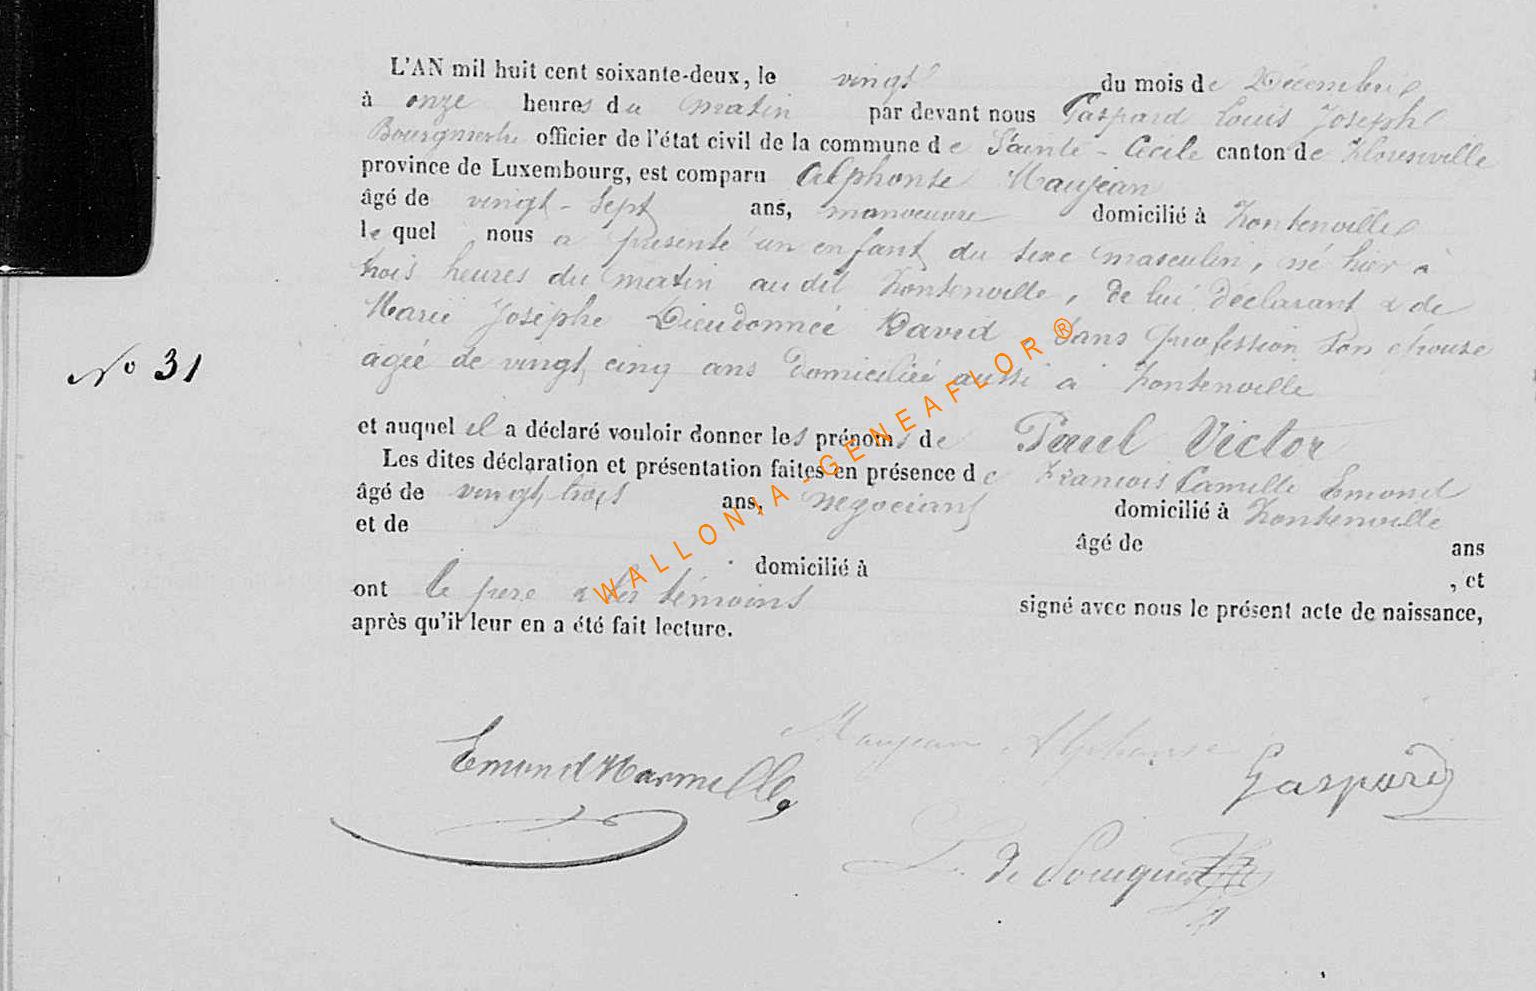 L'AN mil huit cent soixante-deux, le vingt du mois de Décembre
à onze heures du matin par devant nous Gaspard Louis Joseph
Bourgmestre officier de l'état civil de la commune de Sainte-Cécile canton de Florenville
province de Luxembourg, est comparu Alphonse Maujean
âgé de vingt-sept ans, manoeuvre domicilié à Fontenoille
le quel nous a présenté un enfant du sexe masculin, né hier à
trois heures du matin au dit Fontenoille, de lui déclarant & de
Marie Josèphe Dieudonnée David, sans profession son épouse
âgée de vingt cinq ans domiciliée aussi à Fontenoille
No 31
et auquel il a déclaré vouloir donner les prénoms de Paul Victor
Les dites déclaration et présentation faites en présence de François Camille Emond
âgé de vingt trois ans, négociant domicilié à Fontenoille
et de âgé de ans
domicilié à , et
ont le père & les témoins signé avec nous le présent acte de naissance,
après qu'il leur en a été fait lecture.
Maujean Alphonse
Emond Gaspard
WALLONIA-GENEAFLOR®